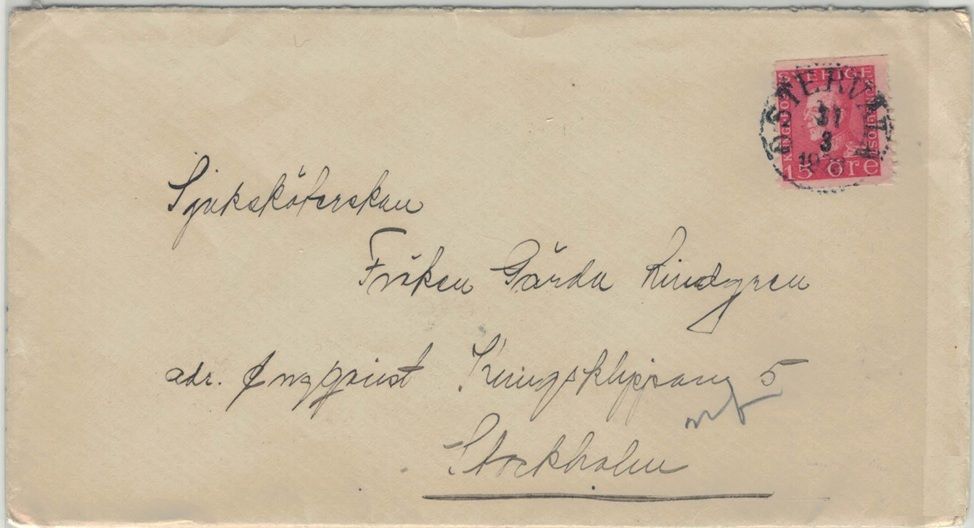 SVERIGE
ÖSTERVÅLA
31
3
15 öre
Sjuksköterskan
Fröken Gärda Lindgren
adr. Engqvist Kungsklippan 5
Stockholm